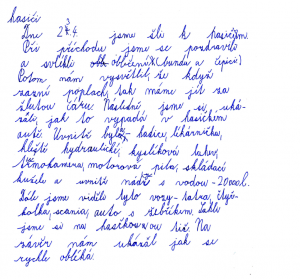 hasiči
Dne 23.4. jsme šli k hasičům.
Při příchodu jsme se pozdravili
a svlékli oblečení (bundu a čepici)
Potom nám vysvětlil, že když
zazní poplach, tak máme jít za
žlutou čáru. Následně, jsme si, uká-
zali, jak to vypadá v hasičkém
autě. Uvnitř bylo: hadice, lékárnička,
kleště hydraulické, kyslíková lahev,
termokamera, motorová pila, skládací
kužele a uvnitř nádrž s vodou - 
Dále jsme viděli tyto vozy - tatra, čtyř-
kolka, scania, auto s žebříkem. Další
jsme se na hasičkou Na
závěr nám ukázal jak se
rychle obléká.